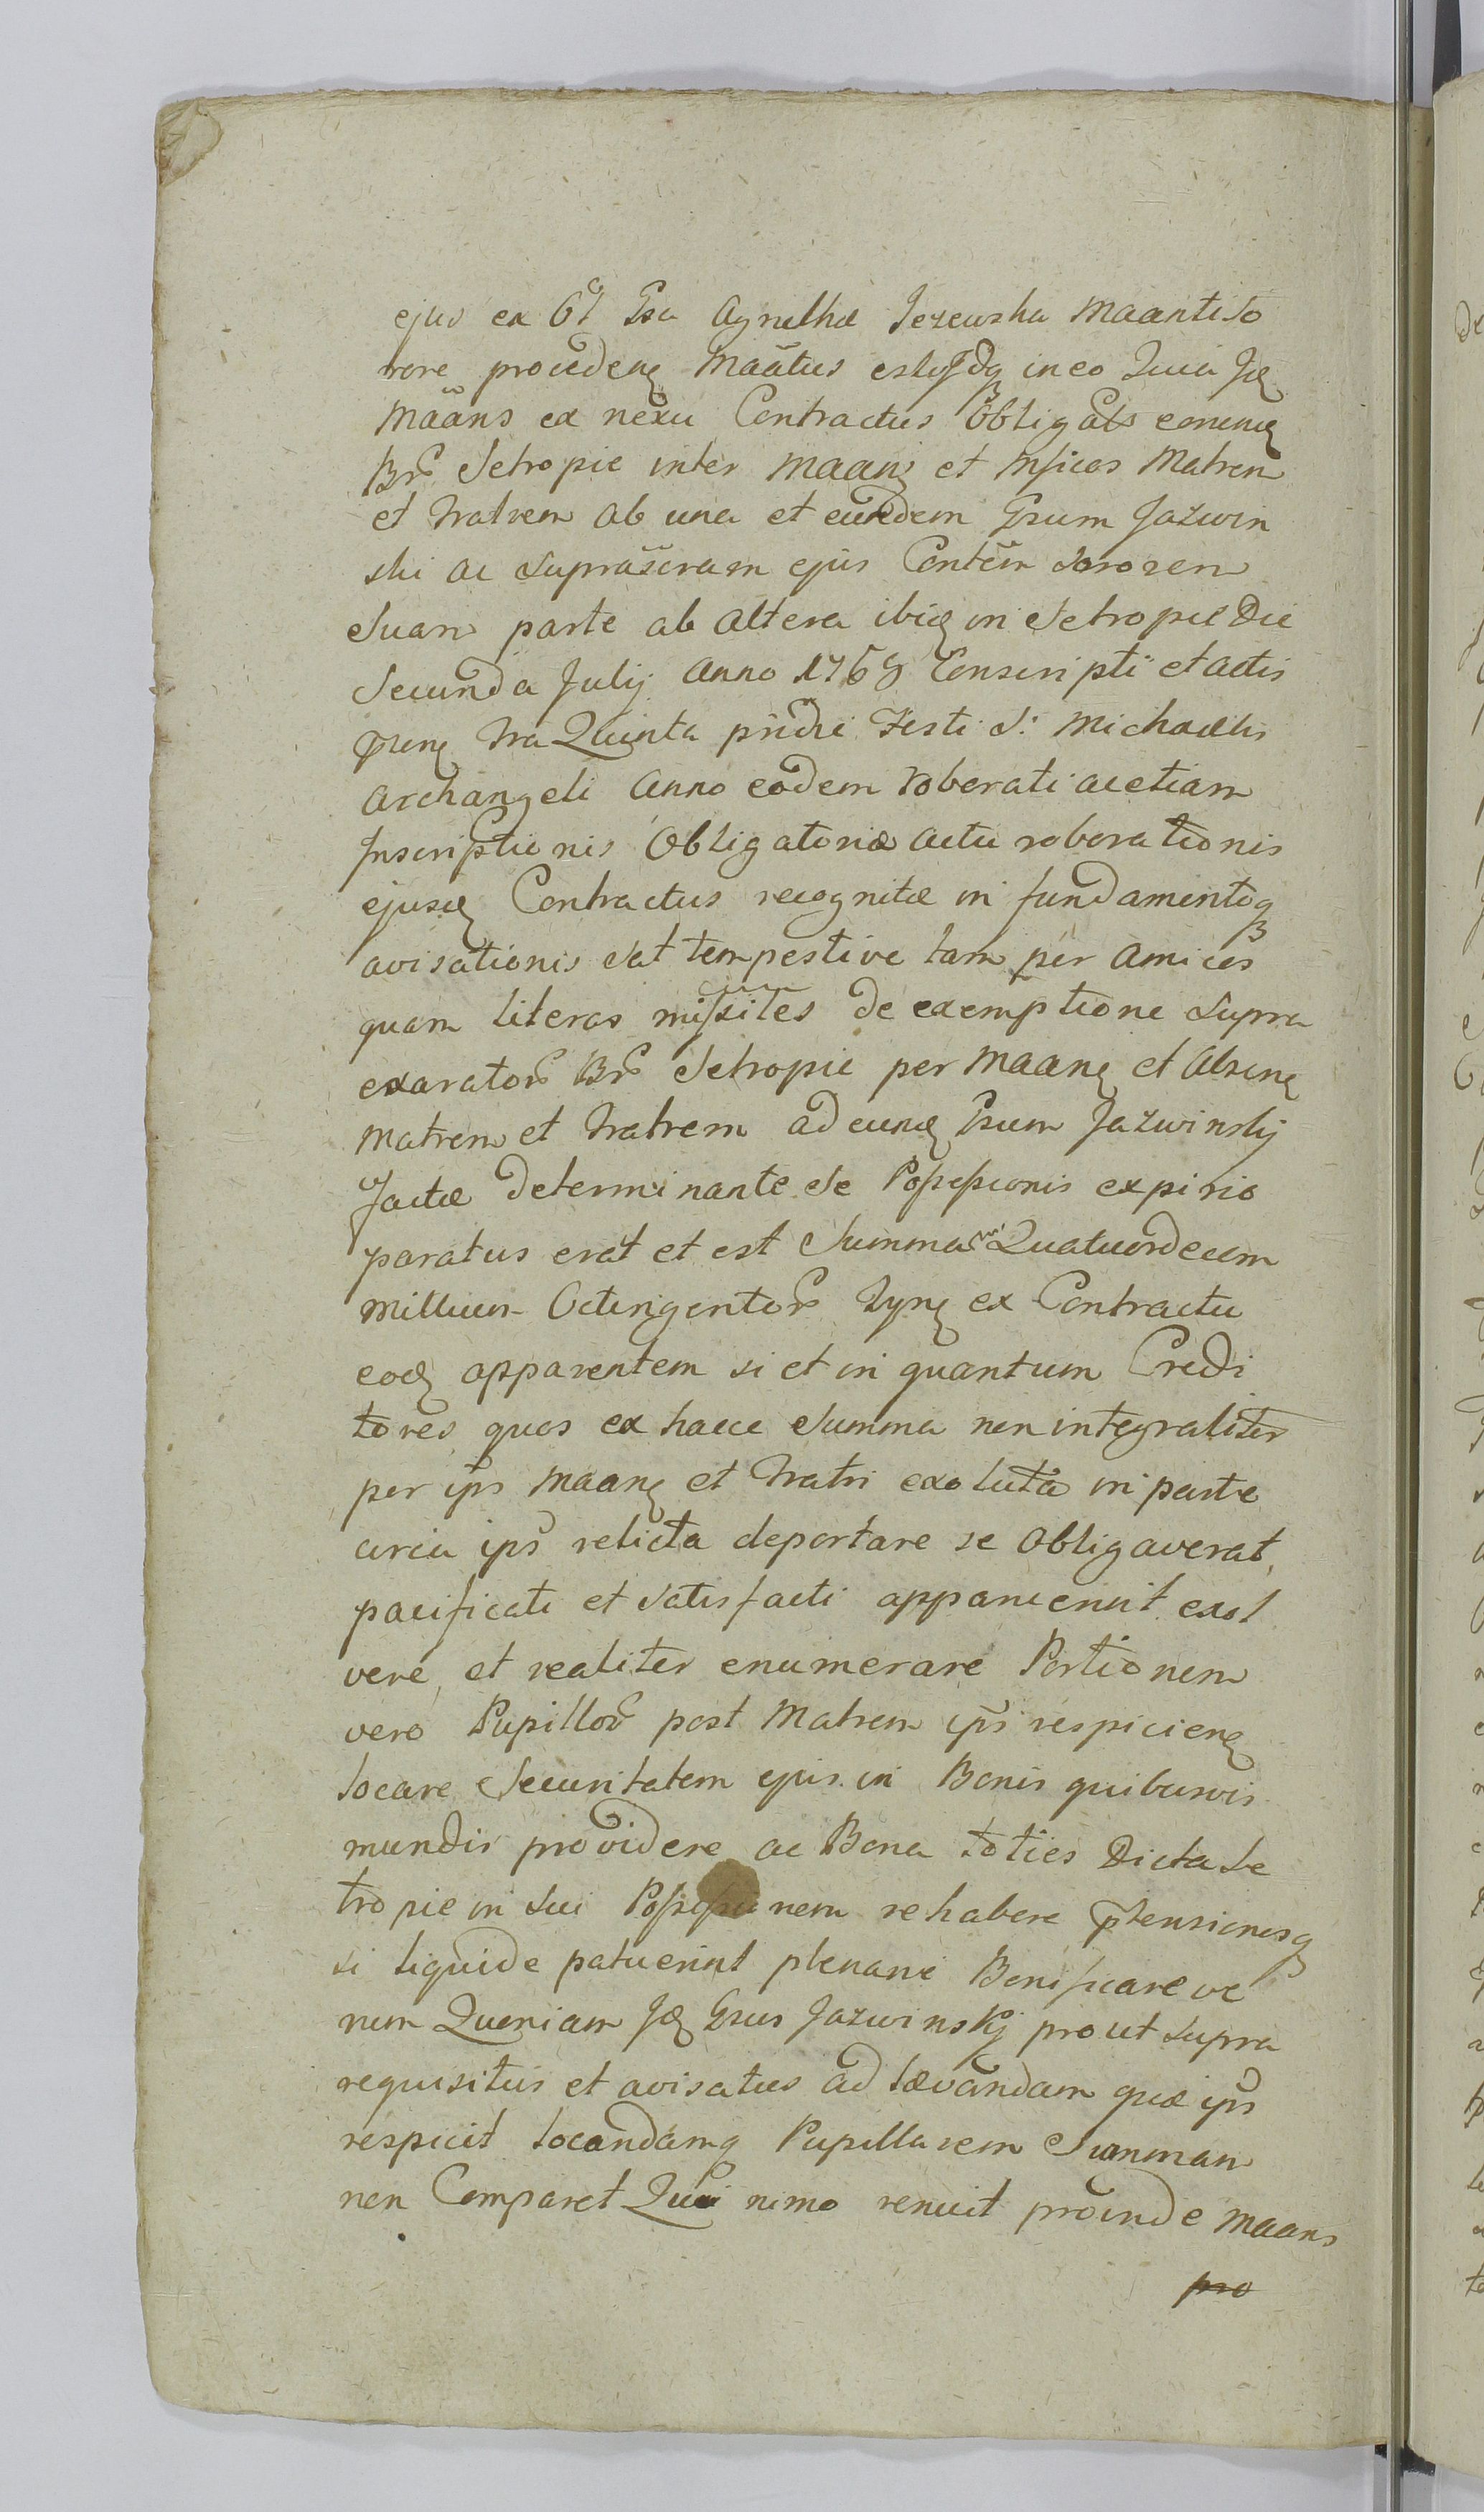 ejus ex Gsa Agnethæ Jezewska Maanti So
rore procedenς Maãtus est idq in eo Quia Jdς
Maãns ex nexu Contractus Obligats eorunς
Brõ Setropie inter Maans et Matrem
et Fratrem ab una et eundem Gsum Jazwin
ski ac Suprascram ejus Contem Sororem
Suam parte ab altera ibiς in Setropie Die
Secunda Julij Anno 1769 Conscripti et actis
pñenς Fra Quinta pridie Festi S: Michaelis
Archangeli Anno eodem roborati ac etiam
Inscriptionis Obligatoriæ actu roborationis
ejusς Contractus recognitæ in fundamentoq
avisationis Sat tempestive tam per Amicos
quam literas missiles de exemptione Supra
exaratorõ Brõ Setropie per Maanς et Absenς
Matrem et Fratrem ad eunς Gsum Jazwinskj
factæ determinante Se Possessionis expirio
paratus erat et est Summam Quatuordecem
millium Octingentorõ Fpnς ex Contractu
eoς apparentem si et in quantum Credi
tores quos ex haece Summa non integraliter
per ips Maanς et Fratri exoluta in parte
circa ips relicta deportare se obligaverat,
pacificati et Satisfacti apparuerint exol
vere, et realiter enumerare Portionem
vero Pupillorõ post Matrem ips respicienς
locare Securitatem ejus in Bonis quibusvis
mundis providere ac Bona toties Dicta Se
tropie in Sui Possessionem rehabere ptensionesq
si liquide patuerint plenarie Bonificare ve
rum Quoniam Jdς Gsus Jazwinskj prout Supra
requisitus et avisatus ad lævandam quæ ips
respicit locandamq Pupillarem Summam
non Comparet Quin nimo renuit proinde Maans
pro